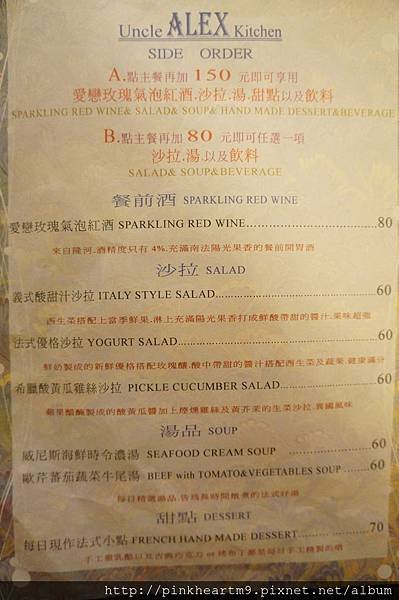 Uncle ALEX Kitchen
SIDE ORDER
A.點主餐再加 150 元即可享用
愛戀玫瑰氣泡紅酒.沙拉.湯.甜點以及飲料
SPARKLING RED WINE& SALAD& SOUP& HAND MADE DESSERT&BEVERAGE
B.點主餐再加 80 元即可任選一項
沙拉.湯.以及飲料
SALAD& SOUP&BEVERAGE
餐前酒 SPARKLING RED WINE
愛戀玫瑰氣泡紅酒 SPARKLING RED WINE 80
來自隆河.酒精度只有 4%.充滿南法陽光果香的餐前開胃酒
沙拉 SALAD
義式酸甜汁沙拉 ITALY STYLE SALAD 60
西生菜搭配上當季鮮果.淋上充滿陽光果香打成鮮酸帶甜的醬汁.果味超強
法式優格沙拉 YOGURT SALAD 60
鮮奶製成的新鮮優格搭配玫瑰釀.酸中帶甜的醬汁搭配西生菜及蔬果.健康滿分
希臘酸黃瓜雞絲沙拉 PICKLE CUCUMBER SALAD 60
蘋果醋醃製成的酸黃瓜醬加上煙燻雞絲及黃芥茉的生菜沙拉.異國風味
湯品 SOUP
威尼斯海鮮時令濃湯 SEAFOOD CREAM SOUP 60
歐芹蕃茄蔬菜牛尾湯 BEEF with TOMATO&VEGETABLES SOUP 60
每日精選湯品.皆為長時間燉煮的法式好湯
甜點 DESSERT
每日現作法式小點 FRENCH HAND MADE DESSERT 70
手工重乳酪以及古典巧克力 or 烤布丁都是每日手工精製的唷
http://pinkheartm9.pixnet.net/album